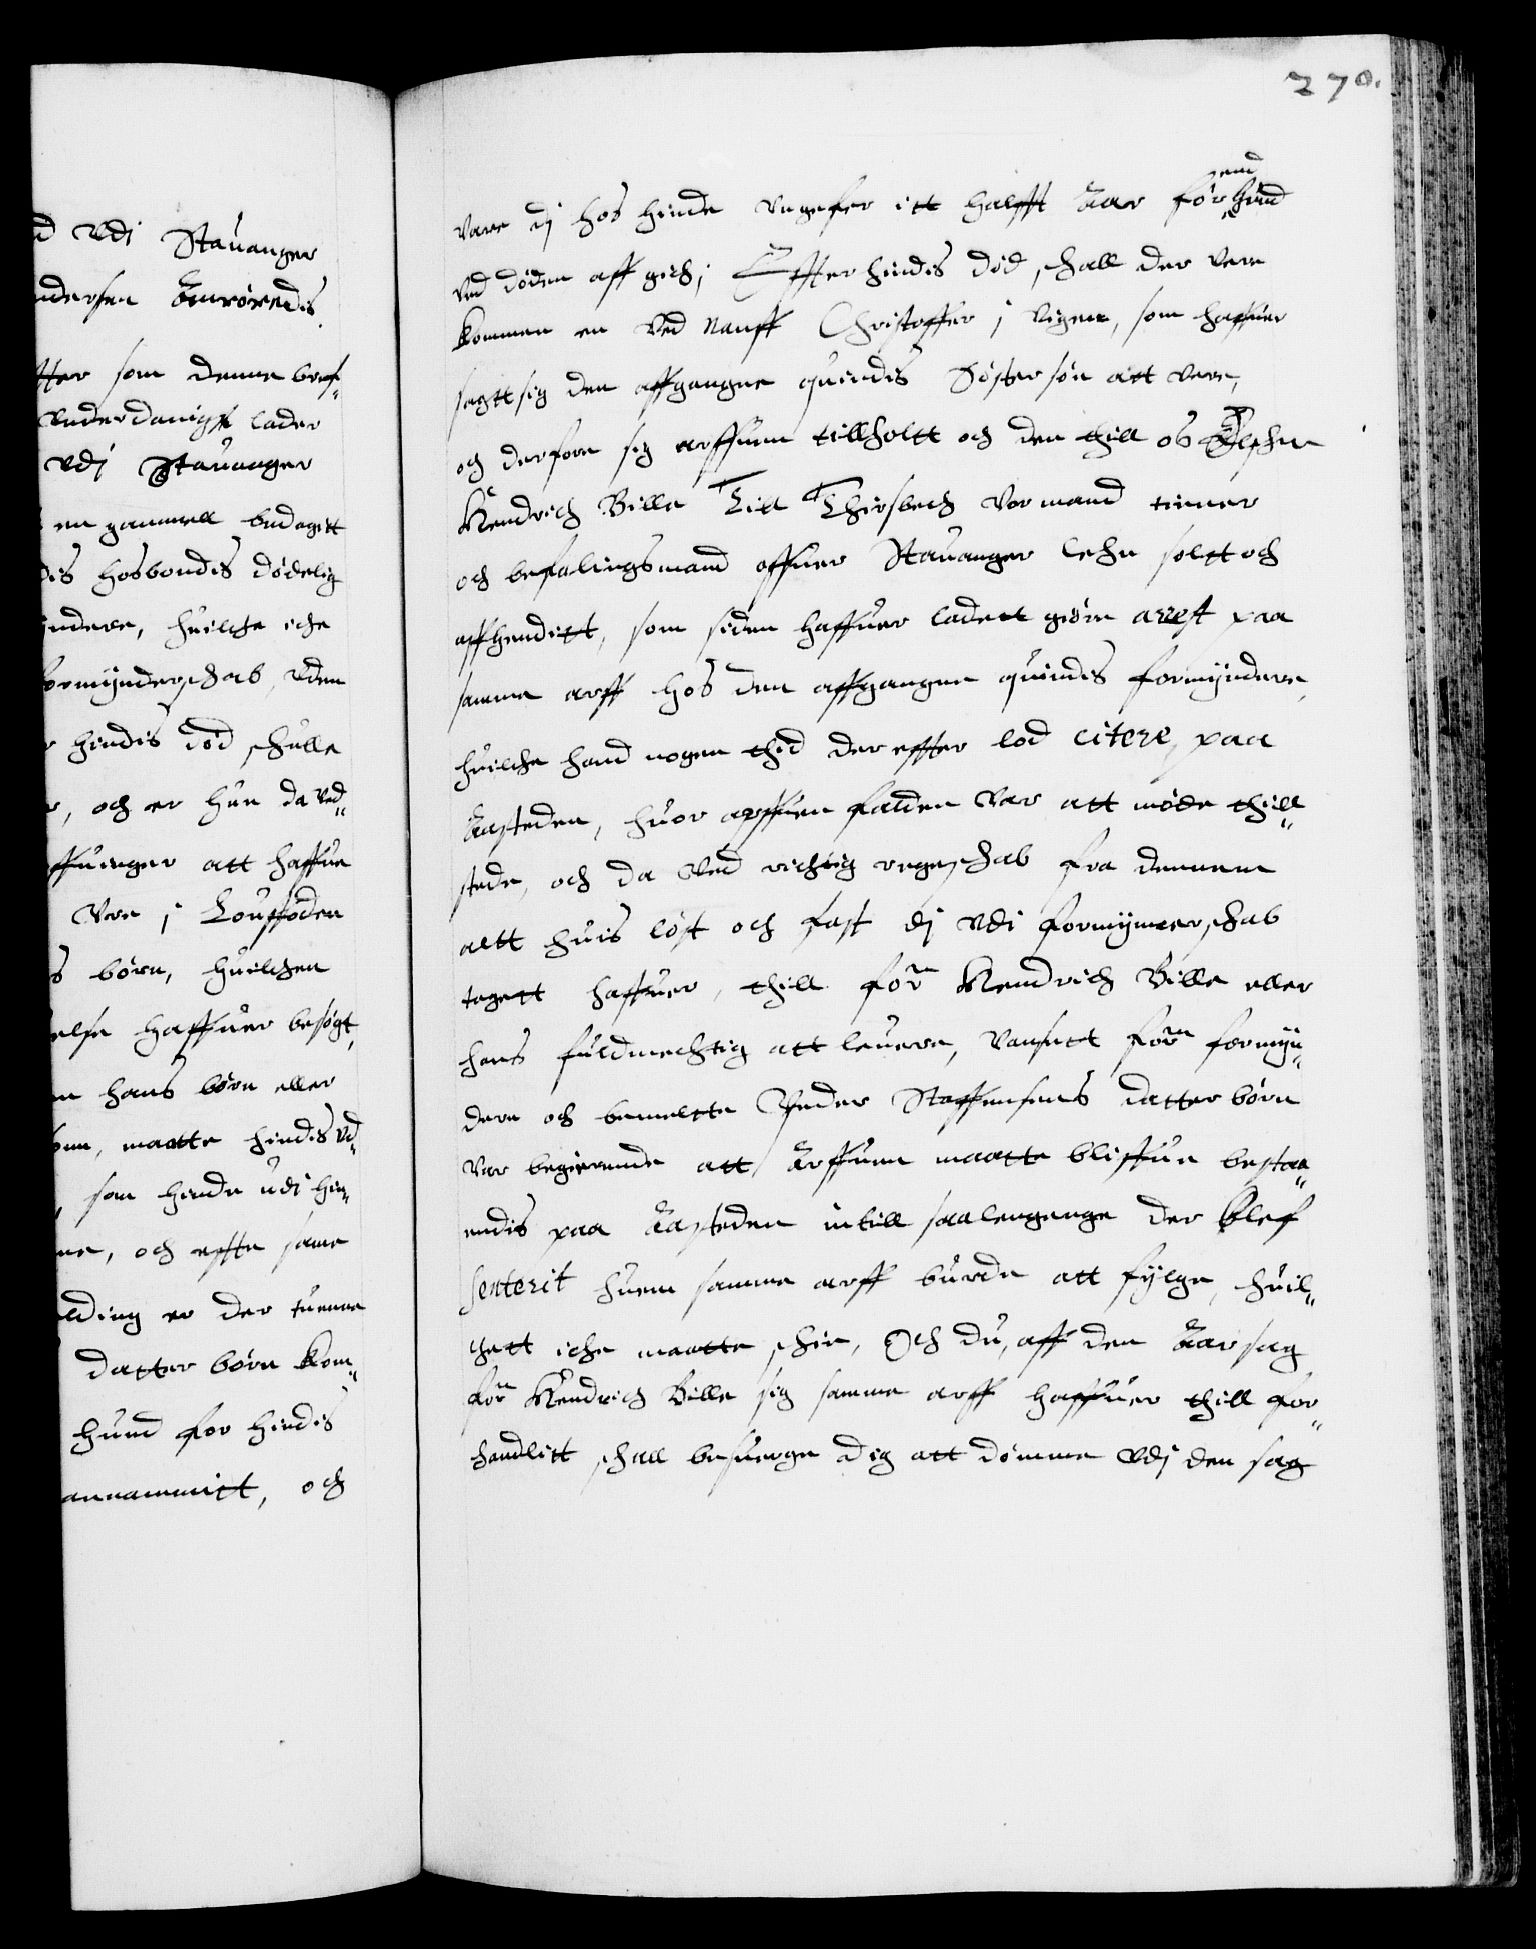 270.
d vdi Stauanger
ndersen Anrørendis
ffter som denne bref¬
vnderdanigst lader
vdi Stauanger
en gammell bedagitt
dis hosbondis dødelig
indere, huilche iche
formynderschab, vden
r hindis død schulle
r, och er hun da ved¬
ffuinger att haffue
vere i
s børn, huilchen
else haffuer besøgt,
m hans børn eller
maatte hindis vd¬
som hinde udi hin¬
ne, och effter same
lding er der tuenne
datter børn kom¬
hund for hindis
annammitt, och
vare dj hos hinde vngefer itt halfft aar før end hund
ved døden aff gich; Effter hindis død, schall der vere
kommen en ved naffn Christoffer i Vigene, som haffuer
sagtt sig den affgangne quindis Søstersøn att vere,
och derfore sig arffuen tillholtt och den thill os Elschelig
Hendrich Bille Till Thirsbech vor mand tiener
och befalingsmand offuer Stauanger lehn soltt och
affhenditt, som siden haffuer ladett giøre arrest paa
samme arff hos den affgangne quindis formyndere,
huilche hand nogen thid der effter lod citere, paa
Aasteden, huor arffuen falden var att møde thill¬
stede, och da ved richtig regeschab fra dennem
altt huis løst och fast dj vdi formynnerschab
tagett haffuer, thill for: Hendrich Bille eller
hans fuldmechtig att leuere, vansett for: formyn¬
dere och bemelte Peder Staffensens datterbørn
var begierende att Arffuen maatte bliffue bestaa¬
endis paa Aasteden intill saalengenge der blef
senterit huem samme arff burde att fylge, huil¬
chett iche maatte schie, Och du, aff den Aarsag
for: Hendrich Bille sig samme arff haffuer thill for¬
handlitt schall besuerge dig att dømme vdj den sag